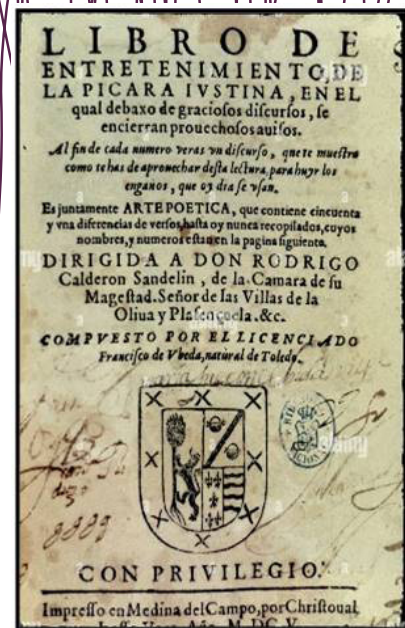 LIBRO DE
ENTRETENIMIENTO, DE
LA PICARA IVSTINA, EN EL
qual debaxo de graciosos discursos, se
encierran prouechosos auisos.
Al fin de cada numero veras vn discurso, que te muestra
como te has de aprouechar desta lectura, para huyr los
enganos, que oy dia se vsan.
Es juntamente ARTE POETICA, que contiene cincuenta
y vna diferencias de versos, hasta oy nunca recopilados, cuyos
nombres, y numeros estan en la pagina siguiente.
DIRIGIDA A DON RODRIGO
Calderon Sandelin, de la Camara de su
Magestad. Señor de las Villas de la
Oliua y Plasençuela. &c.
COMPVESTO POR EL LICENCIADO
Francisco de Vbeda, natural de Toledo.
CON PRIVILEGIO.
Impresso en Medina del Campo, por Christoual
Año, M. DC. V.